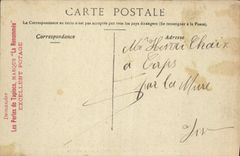 CARTE POSTALE
La Correspondance au recto n'est pas acceptée par tous les pays étrangers (Se renseigner à la Poste).
Correspondance
Adresse
Mr Henri Chaix
à Cops
par la Mure
Demander
Les Perles de Tapioca, MARQUE "La Renommée"
EXCELLENT POTAGE